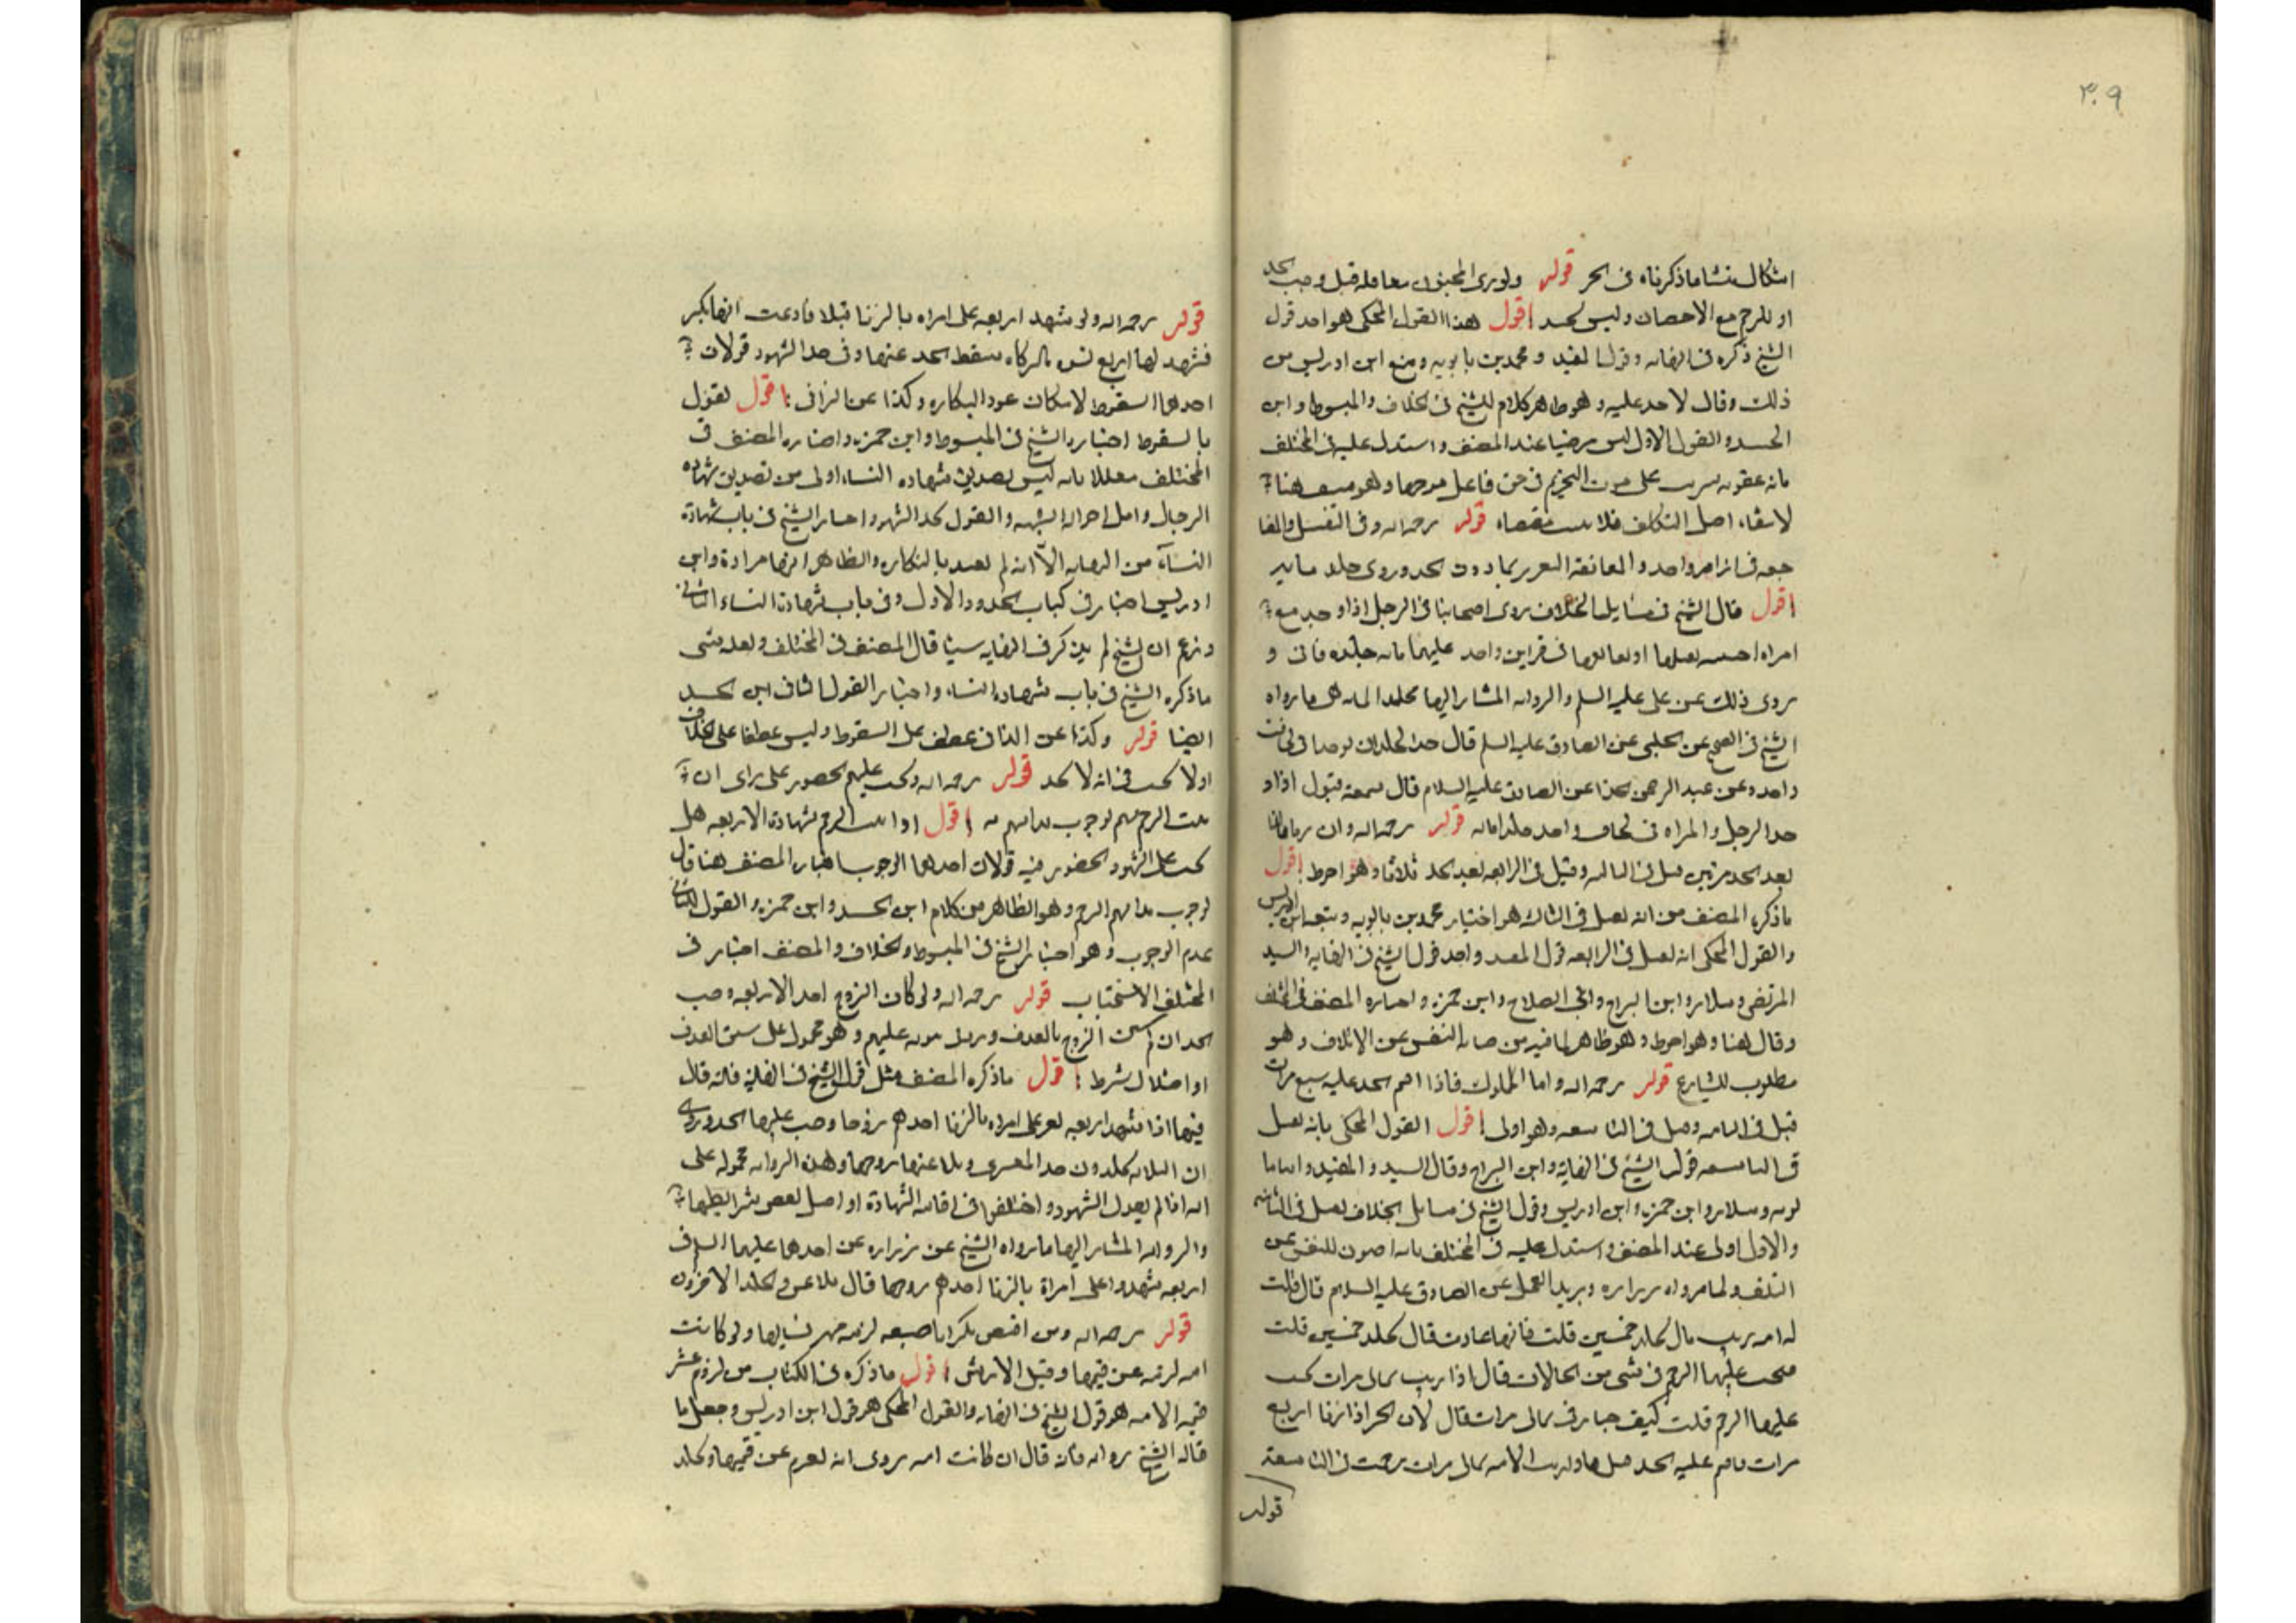 ٣٠٩
اشكال منشا ما ذكرناه فى الحر قوله ولو زنى المجنون بعاقلة قيل وجب الحد
او الرجم مع الاحصان وليس بجيد اقول هذا القول المحكى هو احد قول
الشيخ ذكره فى النهاىه وقول المفيد و محمد بن بابويه و منع ابن ادريس من
ذلك وقال لا حد عليه و هو ظاهر كلام الشيخ فى الخلاف والمبسوط و ابن
الجنيد و القول الاول ليس مرضيا عند المصنف و استدل عليه فى المختلف
بانه عقوبه على ثبوت التحريم فى حق فاعل موجبها وهو هنا
لانتفاء اصل التكليف فلا مقتضاه قوله رحمه الله و فى التقبيل والمضا
جعه فى ازار واحد و المعانقة التعزير بما دون الحد وروى جلد مايه
اقول قال الشيخ فى مسايل الخلاف روى اصحابنا فى الرجل اذا وجد مع
امراه اجنبيه يقبلها او يعانقها فى فراش واحد عليهما مائه جلده فانى و
روى ذلك عن على عليه السلم والروايه المشار اليها بجلد المايه هى ما رواه
الشيخ فى الصحيح عن الحلبى عن الصادق عليه السلم قال حد الجلد ان يوجدا فى لحاف
واحد وعن عبد الرحمن الحذا عن الصادق عليه السلام قال سمعته يقول اذا و
جد الرجل و المراه فى لحاف واحد جلدا مايه قوله رحمه الله و ان زنيا
بعد الحد مرتين قتل فى الثالثه و قيل فى الرابعه بعد الحد ثلاثا و هو احوط اقول
ما ذكره المصنف من انه يقتل فى الثالثه هو اختيار محمد بن بابويه و تبعه ابن ادريس
و القول المحكى انه يقتل فى الرابعه قول المفيد و احد قول الشيخ فى النهايه و السيد
المرتضى و سلار و ابن البراج و ابى الصلاح و ابن حمزه و اختاره المصنف فى المختلف
و قال هنا و هو احوط و هو ظاهر لما فيه من صيانه النفس عن الاتلاف و هو
مطلوب للشارع قوله رحمه الله و اما المملوك فاذا اقيم الحد عليه سبع مرات
قتل فى الثامنه و قيل فى التاسعه و هو اولى اقول القول المحكى بانه يقتل
فى التاسعه قول الشيخ فى النهاية و ابن البراج و قال السيد و المفيد و ابنا با
بويه و سلار و ابن حمزه و ابن ادريس و قول الشيخ فى مسايل الخلاف يقتل فى الثامنه
و الاول اولى عند المصنف و استدل عليه فى المختلف بانه اصون للنفس عن
التلف و لما رواه زراره و بريد العجلى عن الصادق عليه السلام قال قلت
له امه زنت قال تجلد خمسين قلت فانها عادت قال تجلد خمسين قلت
فيجب عليها الرجم فى شى من الحالات قال اذا زنت ثمانى مرات يجب
عليها الرجم قلت كيف صار فى ثمانى مرات فقال لان الحر اذا زنا اربع
مرات واقيم عليه الحد قتل فاذا زنت الامه ثمانى مرات رجمت فى التاسعة
قوله
قوله رحمه الله ولو شهد اربعه على امراه بالزنا قبلا فادعت انها بكر
فشهد لها اربع نسوه بالبكاره سقط الحد عنها و فى حد الشهود قولان
احدهما السقوط لامكان عود البكاره و كذا عن الزانى اقول القول
بالسقوط اختيار الشيخ فى المبسوط و ابن حمزه و اختاره المصنف فى
المختلف معللا بانه ليس تصديق شهاده النساء اولى من تصديق شهاده
الرجال و اقل احواله الشبهه و القول بحد الشهود اختيار الشيخ فى باب شهادة
النساء من النهايه الا انه لم يقيد بالبكاره و الظاهر انها مرادة و ابن
ادريس اختار فى كتاب الحدود الاول و فى باب شهادة النساء الثانى
و زعم ان الشيخ لم يذكر فى النهايه شيئا قال المصنف فى المختلف و لعله نسى
ما ذكره الشيخ فى باب شهاده النساء و اختار القول الثانى ابن الجنيد
ايضا قوله و كذا عن الزانى عطف على السقوط و ليس عطفا على الخلاف
اولا يجب فى انه لا يحد قوله رحمه الله و يجب عليهم الحضور على راى ان
ثبت الرجم بهم لوجوب بدأتهم به اقول اذا ثبت الرجم بشهادة الاربعه هل
يجب على الشهود الحضور فيه قولان احدهما الوجوب اختاره المصنف هنا قال
لوجوب بداتهم الرجم و هو الظاهر من كلام ابن الجنيد و ابن حمزه و القول الثانى
عدم الوجوب و هو اختيار الشيخ فى المبسوط و الخلاف و المصنف اختار فى
المختلف الاستحباب قوله رحمه الله و لو كان الزوج احد الاربعه وجب
الحد ان لم يسبق الزوج بالقذف و عليهم و هو محمول على سبق القذف
او اختلال شرط اقول ما ذكره المصنف مثل قول الشيخ فى النهايه فانه قال
فيها اذا شهد اربعه نفر على امراه بالزنا احدهم زوجها وجب عليها الحد و روى
ان الثلاثه يجلدون حد المفترى و يلاعنها زوجها و هذه الروايه محموله على
انه اذا لم يعدل الشهود و اختلفوا فى اقامه الشهادة او اختل بعض شرايطها
و الروايه المشار اليها ما رواه الشيخ عن زراره عن احدهما عليهما السلم فى
اربعه شهدوا على امراة بالزنا احدهم زوجها قال يلاعن و يجلد الاخرون
قوله رحمه الله و من افتض بكرا باصبعه لزمه مهر نسايها و لو كانت
امه لزمه عشر قيمتها و قيل الارش اقول ما ذكره فى الكتاب من لزوم عشر
قيمه الامه هو قول الشيخ فى النهايه و القول المحكى هو قول ابن ادريس و جعل ما
قاله الشيخ روايه فانه قال ان كانت امه روى انه يغرم عشر قيمتها و يجلد